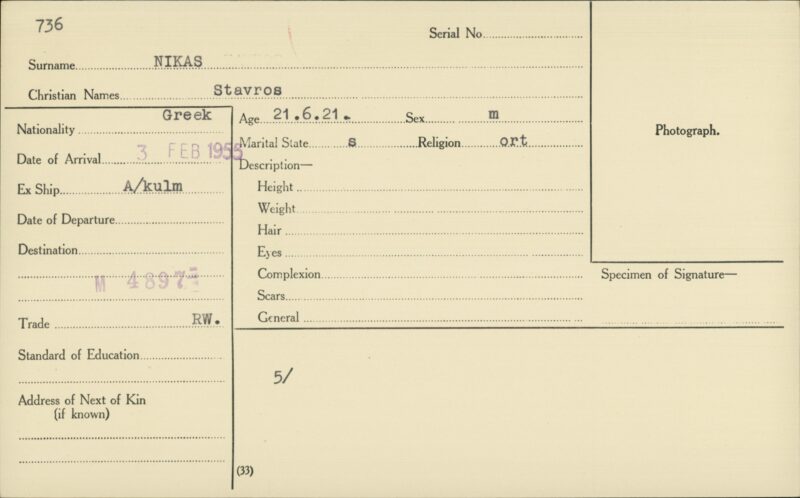 736
Serial No.
Surname NIKAS
Christian Names Stavros
Nationality Greek
Date of Arrival 3 FEB 1955
Ex Ship A/kulm
Date of Departure
Destination
M 4897
Trade RW.
Standard of Education
Address of Next of Kin
(if known)
Age 21.6.21. Sex m
Marital State s Religion ort
Description—
Height
Weight
Hair
Eyes
Complexion
Scars
General
5/
(33)
Photograph.
Specimen of Signature—